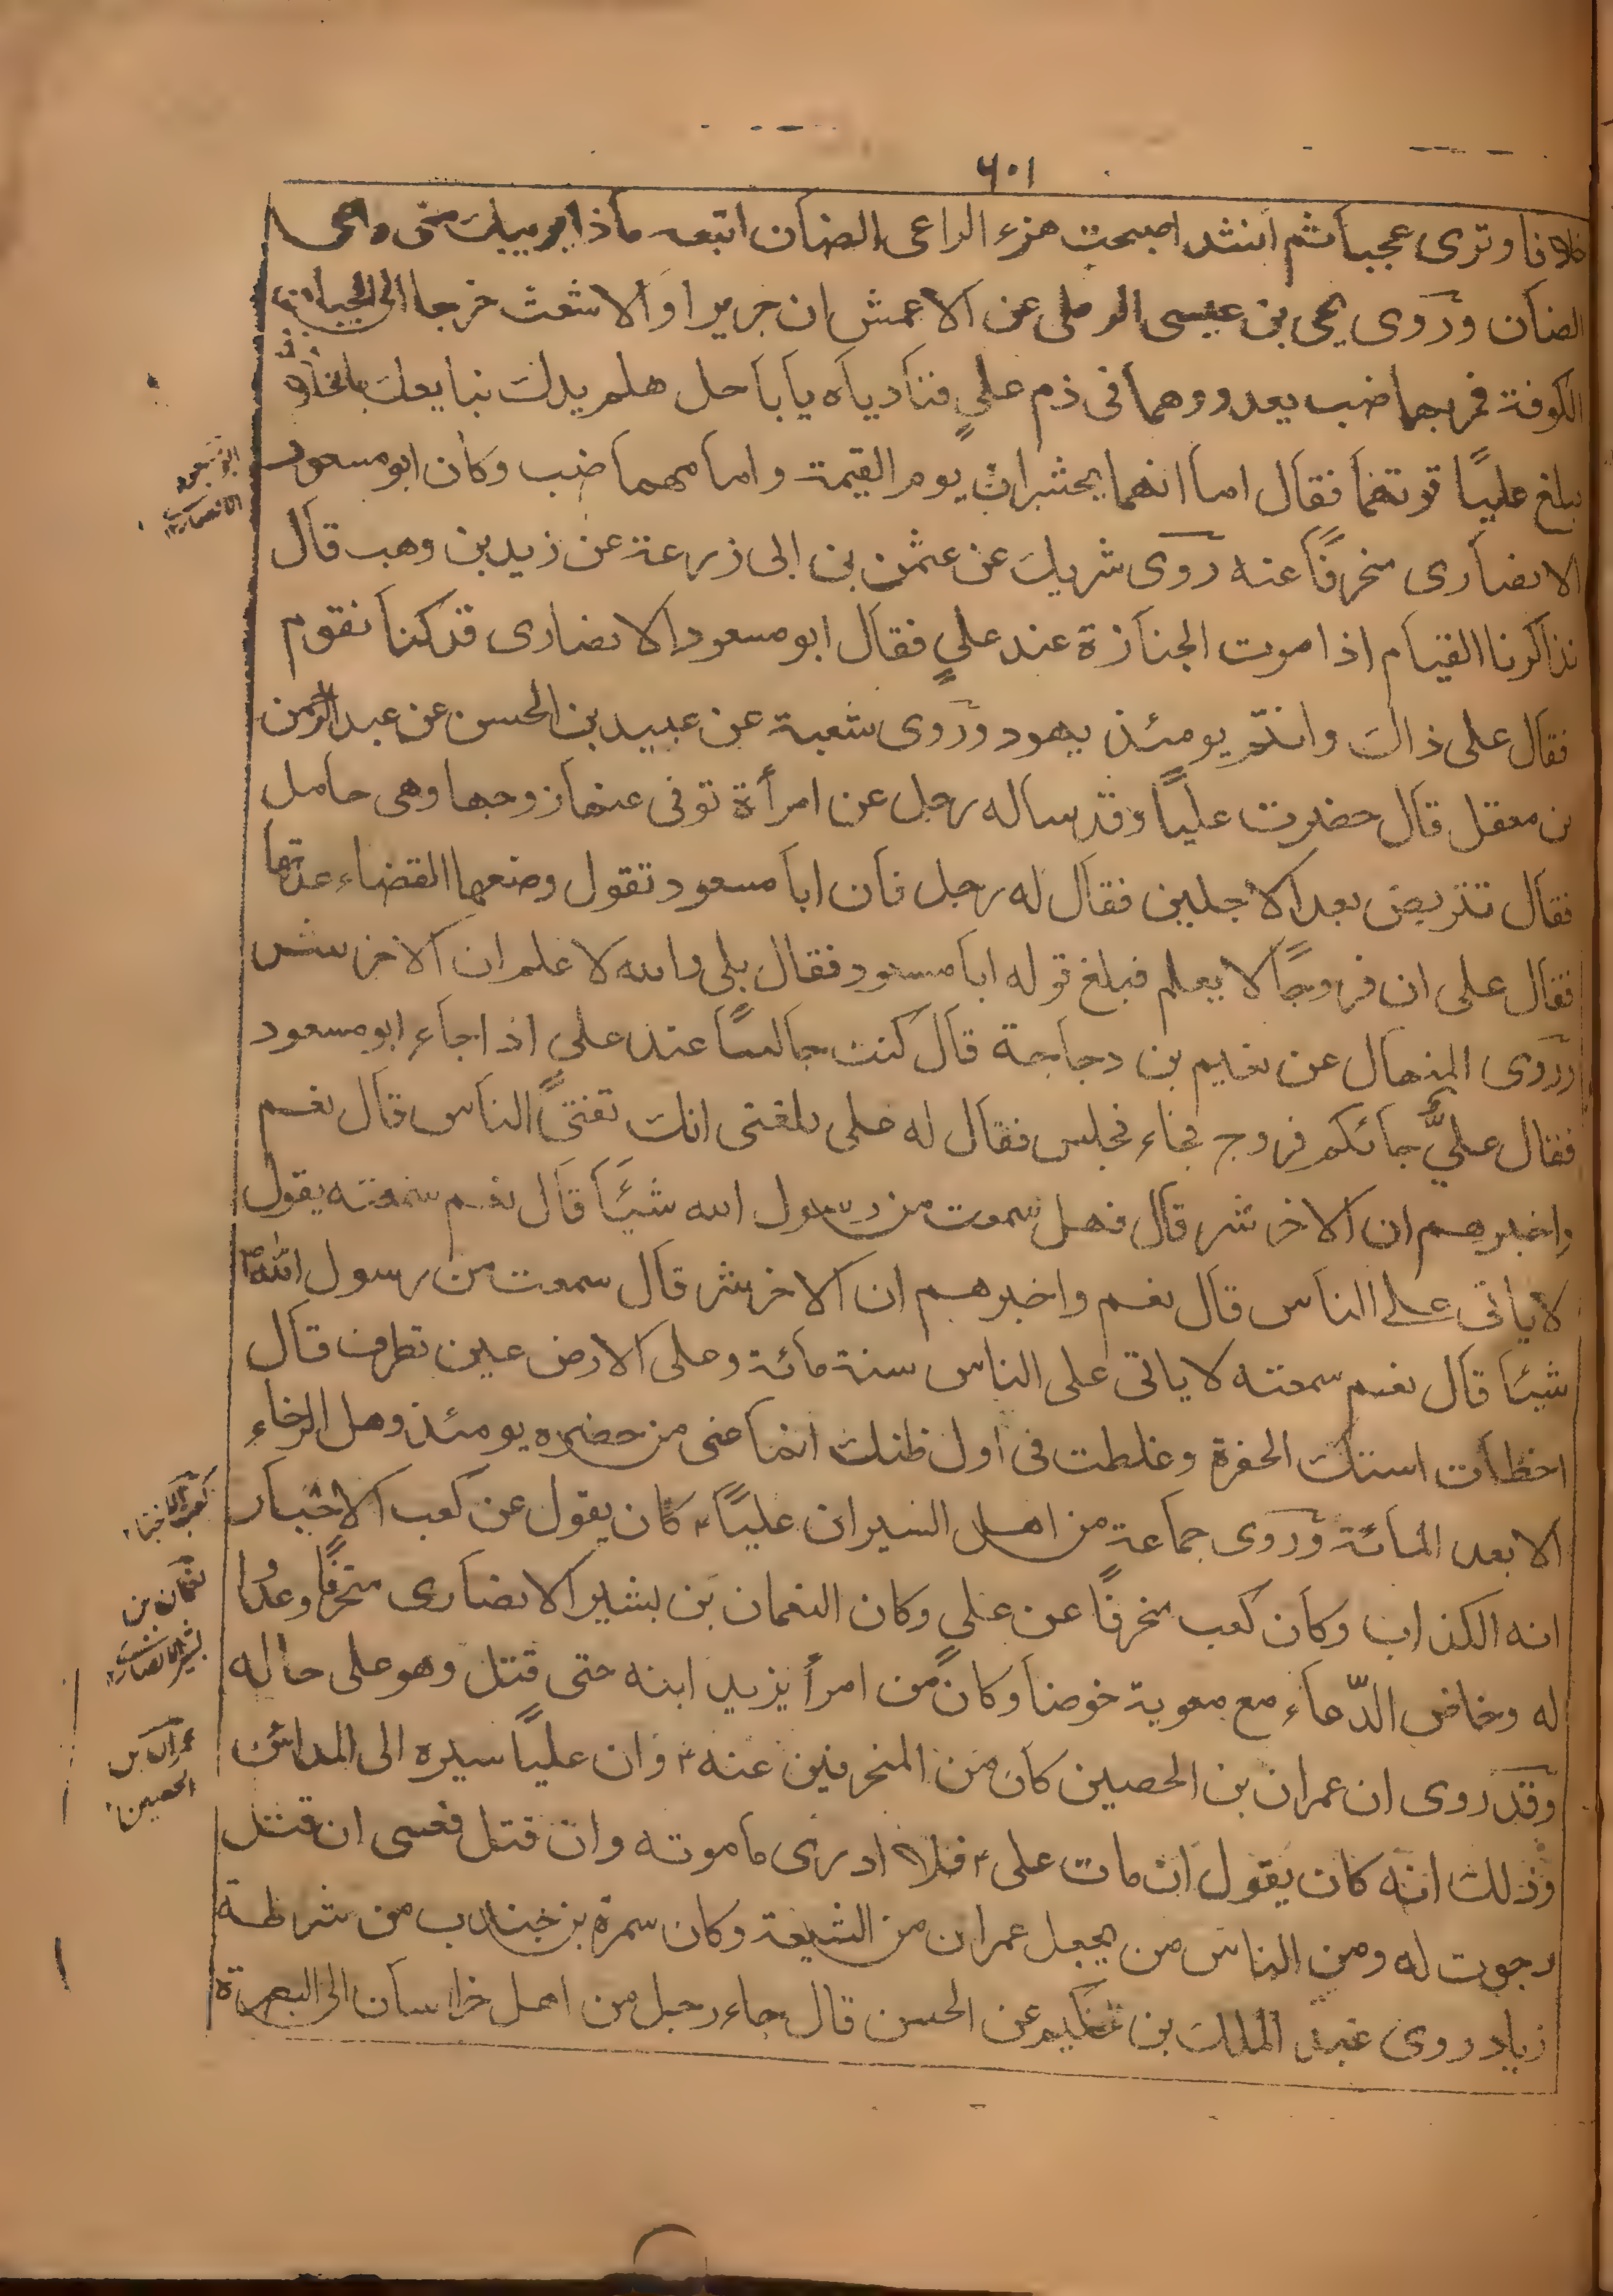 ٦٠١
فلانا وترى عجبا ثم انشد اصبحت هزء الراعى الضان اتبعه ماذا يريبك منى راعى
الضان وروى يحى بن عيسى الرملى عن الاعمش ان جريرا والاشعث خرجا الى الجبان
الكوفة فمر بهما ضب يعدو وهما فى ذم علي فنادياه يا باحل هلم يدك نبايعك بالخلافة
بلغ عليًا قولهما فقال اما انهما يحشران يوم القيمة وامامهما ضب وكان ابو مسعود
الانصارى منحرفًا عنه روى شريك عن عثمن بن ابى زرعة عن زيد بن وهب قال
تذاكرنا القيام اذا مرت الجنازة عند علي فقال ابو مسعود الانصارى قد كنا نقوم
فقال على ذاك وانتم يومئذ يهود وروى شعبة عن عبيد بن الحسن عن عبد الرحمن
بن معقل قال حضرت عليًا وقد ساله رجل عن امرأة توفى عنها زوجها وهى حامل
فقال تتربص بعد الاجلين فقال له رجل فان ابا مسعود تقول وضعها القضاء عدتها
فقال على ان فروجًا لا يعلم فبلغ قوله ابا مسعود فقال بلى والله لا علم ان الاخر شر
وروى المنهال عن نعيم بن دجاجة قال كنت جالسًا عند علي اذا جاء ابو مسعود
فقال عليٌّ جائكم فروج فجاء فجلس فقال له على بلغنى انك تفتى الناس قال نعم
واخبرهم ان الاخر شر قال فهل سمعت من رسول الله شيئًا قال نعم سمعته يقول
لا ياتى على الناس قال نعم واخبرهم ان الاخر شر قال سمعت من رسول الله ص
شيئا قال نعم سمعته لا ياتى على الناس سنة مائة وعلى الارض عين تطرف قال
اخطات استك الحفرة وغلطت فى اول ظنك انما عنى من حضره يومئذ وهل الرخاء
الا بعد المائة وروى جماعة من اهل السير ان عليًا ع كان يقول عن كعب الاخبار
انه الكذاب وكان كعب منحرفًا عن على وكان النعمان بن بشير الانصارى منحرفًا وعدوا
له وخاض الدماء مع معوية خوضا وكان من امرأ يزيد ابنه حتى قتل وهو على حاله
وقد روى ان عمران بن الحصين كان من المنحرفين عنه ع وان عليًا سيره الى المدائن
وذلك انه كان يقول ان مات على ع فلا ادرى ما موته وان قتل فعسى ان قتل
رجوت له ومن الناس من يجعل عمران من الشيعة وكان سمرة بن جندب من شرطة
زياد روى عبد الملك بن حكيم عن الحسن قال جاء رجل من اهل خراسان الى البصرة
ابو مسعود
الانصارى
كعب الاخبار
نعمان بن
بشير الانصارى
عمران بن
الحصين